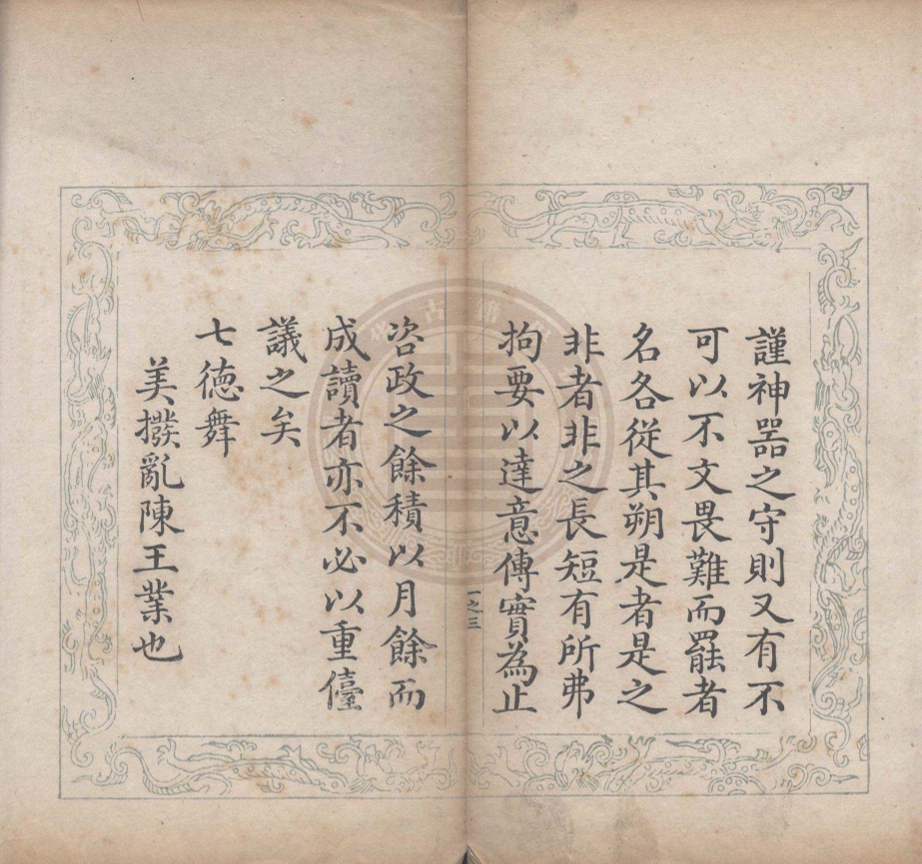 謹神器之守則又有不
可以不文畏難而罷者
名各從其朔是者是之
非者非之長短有所弗
拘要以達意傳實為止
一之三
咨政之餘積以月餘而
成讀者亦不必以重儓
議之矣
七徳舞
美撥亂陳王業也